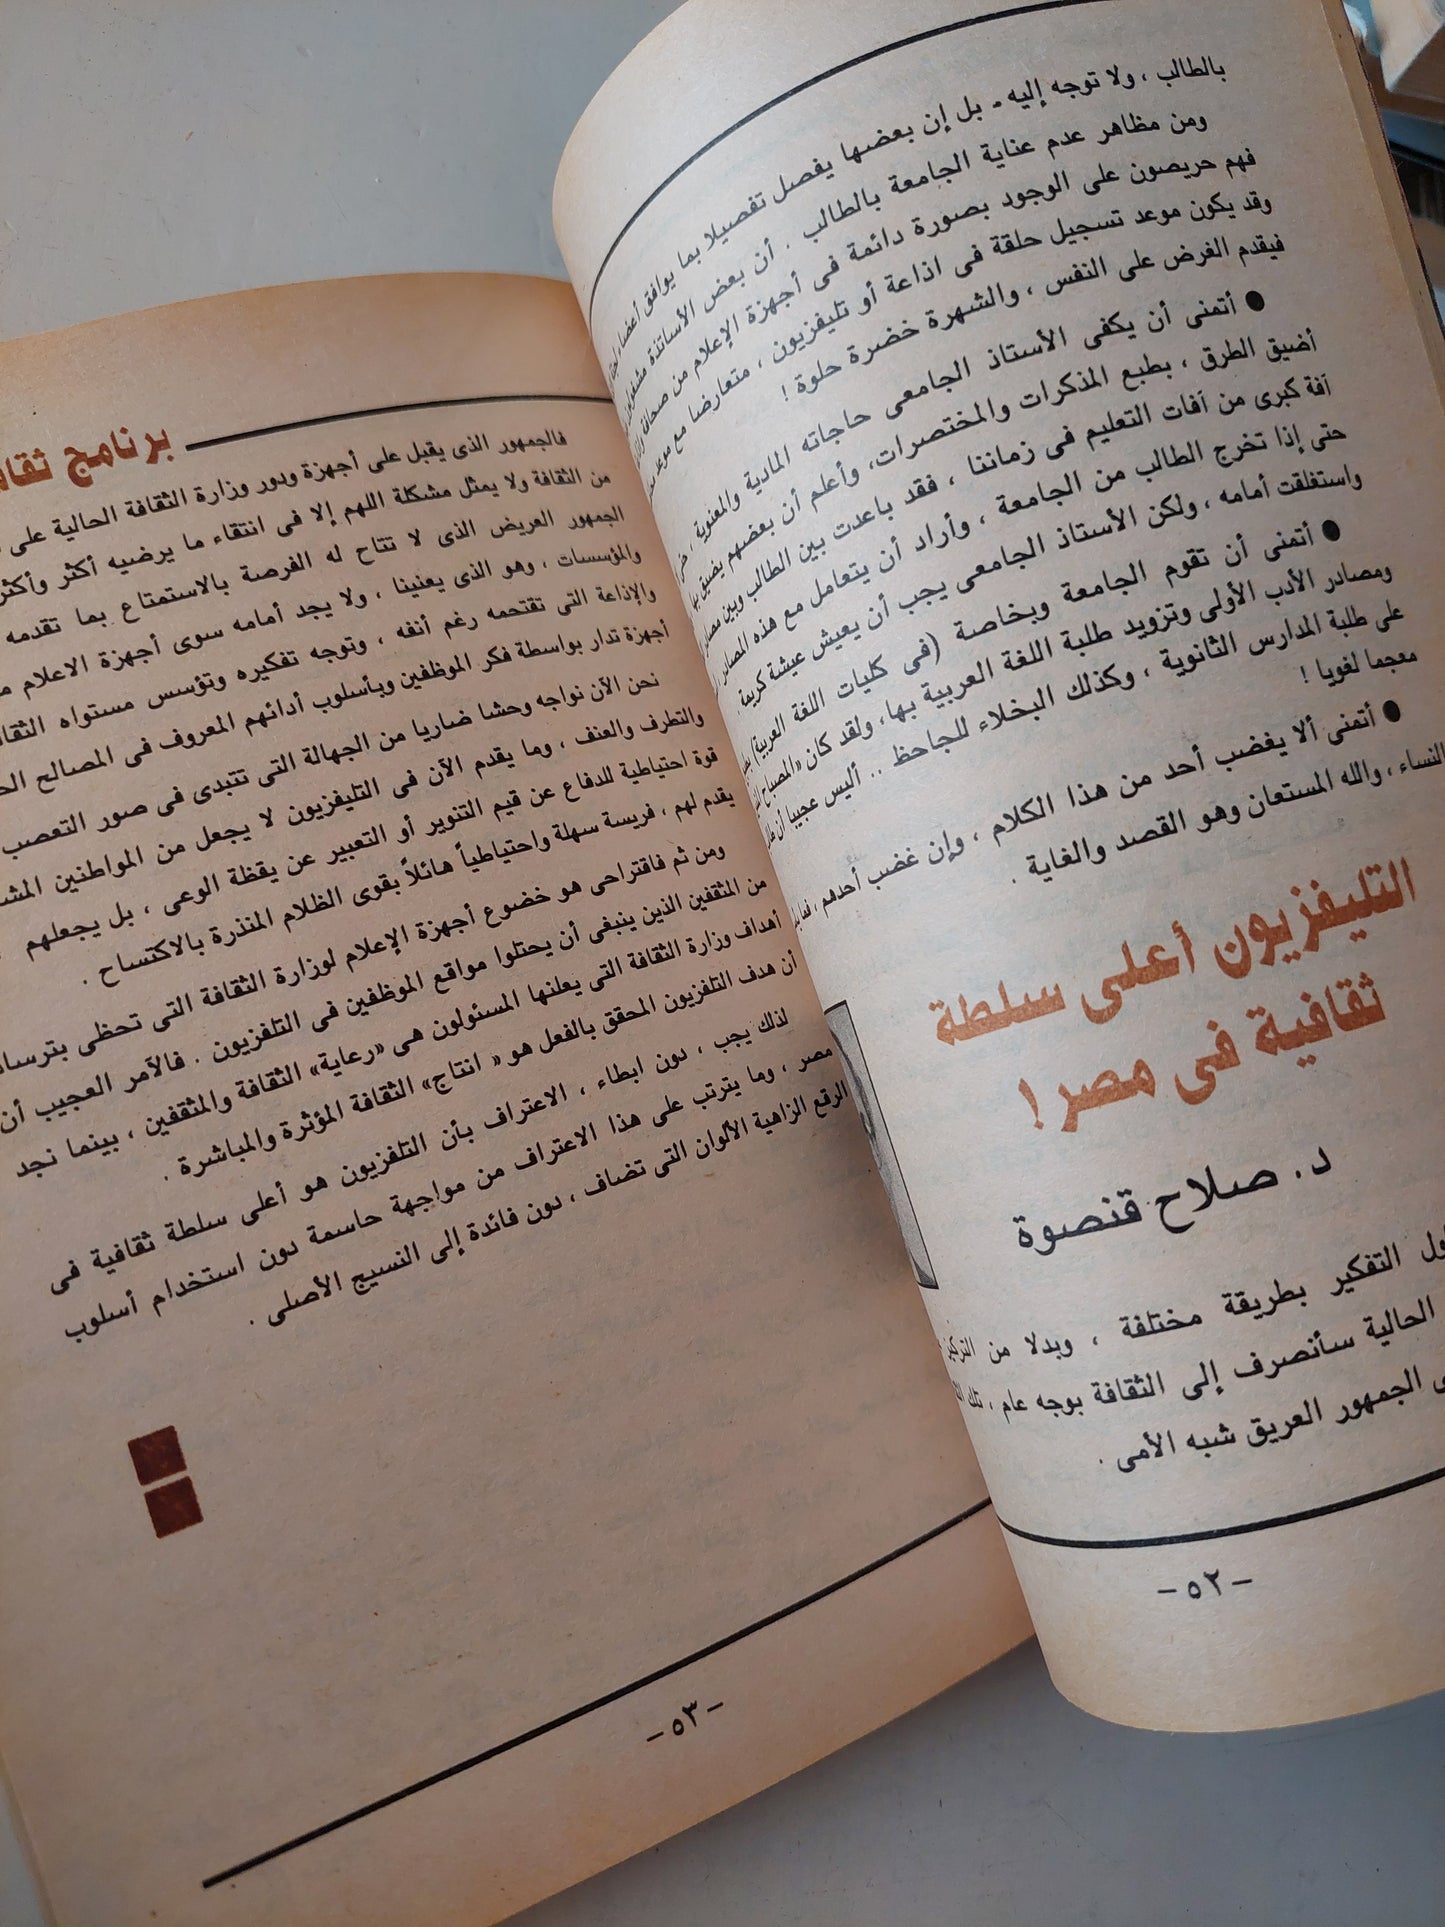 بالطالب ، ولا توجه إليه - بل إن بعضها يفصل تفصيلا بما يوافق أعضاء
ومن مظاهر عدم عناية الجامعة بالطالب . أن بعض الأساتذة
فهم حريصون على الوجود بصورة دائمة فى أجهزة الإعلام من صحافة
وقد يكون موعد تسجيل حلقة فى اذاعة أو تليفزيون ، متعارضا مع موعد
فيقدم الغرض على النفس ، والشهرة خضرة حلوة !
● أتمنى أن يكفى الأستاذ الجامعى حاجاته المادية والمعنوية ،
أضيق الطرق ، بطبع المذكرات والمختصرات، وأعلم أن بعضهم يضيق بها
آفة كبرى من آفات التعليم فى زماننا ، فقد باعدت بين الطالب وبين
حتى إذا تخرج الطالب من الجامعة ، وأراد أن يتعامل مع هذه المصادر
واستغلقت أمامه ، ولكن الأستاذ الجامعى يجب أن يعيش عيشة كريمة .
● أتمنى أن تقوم الجامعة وبخاصة (فى كليات اللغة العربية)
ومصادر الأدب الأولى وتزويد طلبة اللغة العربية بها، ولقد كان «المصباح
على طلبة المدارس الثانوية ، وكذلك البخلاء للجاحظ .. أليس عجيبا أن
معجما لغويا !
● أتمنى ألا يغضب أحد من هذا الكلام ، وإن غضب أحدهم ،
النساء ، والله المستعان وهو القصد والغاية .
التليفزيون أعلى سلطة
ثقافية فى مصر !
د. صلاح قنصوة
التفكير بطريقة مختلفة ، وبدلا من
الحالية سأنصرف إلى الثقافة بوجه عام ، تلك
الجمهور العريق شبه الأمى .
-٥٢-
برنامج
فالجمهور الذى يقبل على أجهزة ودور وزارة الثقافة الحالية على
من الثقافة ولا يمثل مشكلة اللهم إلا فى انتقاء ما يرضيه أكثر وأكثر
الجمهور العريض الذى لا تتاح له الفرصة بالاستمتاع بما تقدمه
والمؤسسات ، وهو الذى يعنينا ، ولا يجد أمامه سوى أجهزة الاعلام
والإذاعة التى تقتحمه رغم أنفه ، وتوجه تفكيره وتؤسس مستواه
أجهزة تدار بواسطة فكر الموظفين وبأسلوب أدائهم المعروف فى المصالح
نحن الآن نواجه وحشا ضاريا من الجهالة التى تتبدى فى صور التعصب
والتطرف والعنف ، وما يقدم الآن فى التليفزيون لا يجعل من المواطنين
قوة احتياطية للدفاع عن قيم التنوير أو التعبير عن يقظة الوعى ، بل يجعلهم
يقدم لهم ، فريسة سهلة واحتياطياً هائلاً بقوى الظلام المنذرة بالاكتساح .
ومن ثم فاقتراحى هو خضوع أجهزة الإعلام لوزارة الثقافة التى تحظى
من المثقفين الذين ينبغى أن يحتلوا مواقع الموظفين فى التلفزيون . فالأمر العجيب أن
أهداف وزارة الثقافة التى يعلنها المسئولون هى «رعاية» الثقافة والمثقفين ، بينما نجد
أن هدف التلفزيون المحقق بالفعل هو « انتاج» الثقافة المؤثرة والمباشرة .
لذلك يجب ، دون ابطاء ، الاعتراف بأن التلفزيون هو أعلى سلطة ثقافية فى
مصر ، وما يترتب على هذا الاعتراف من مواجهة حاسمة دون استخدام أسلوب
الرقع الزاهية الألوان التى تضاف ، دون فائدة إلى النسيج الأصلى .
-٥٣-